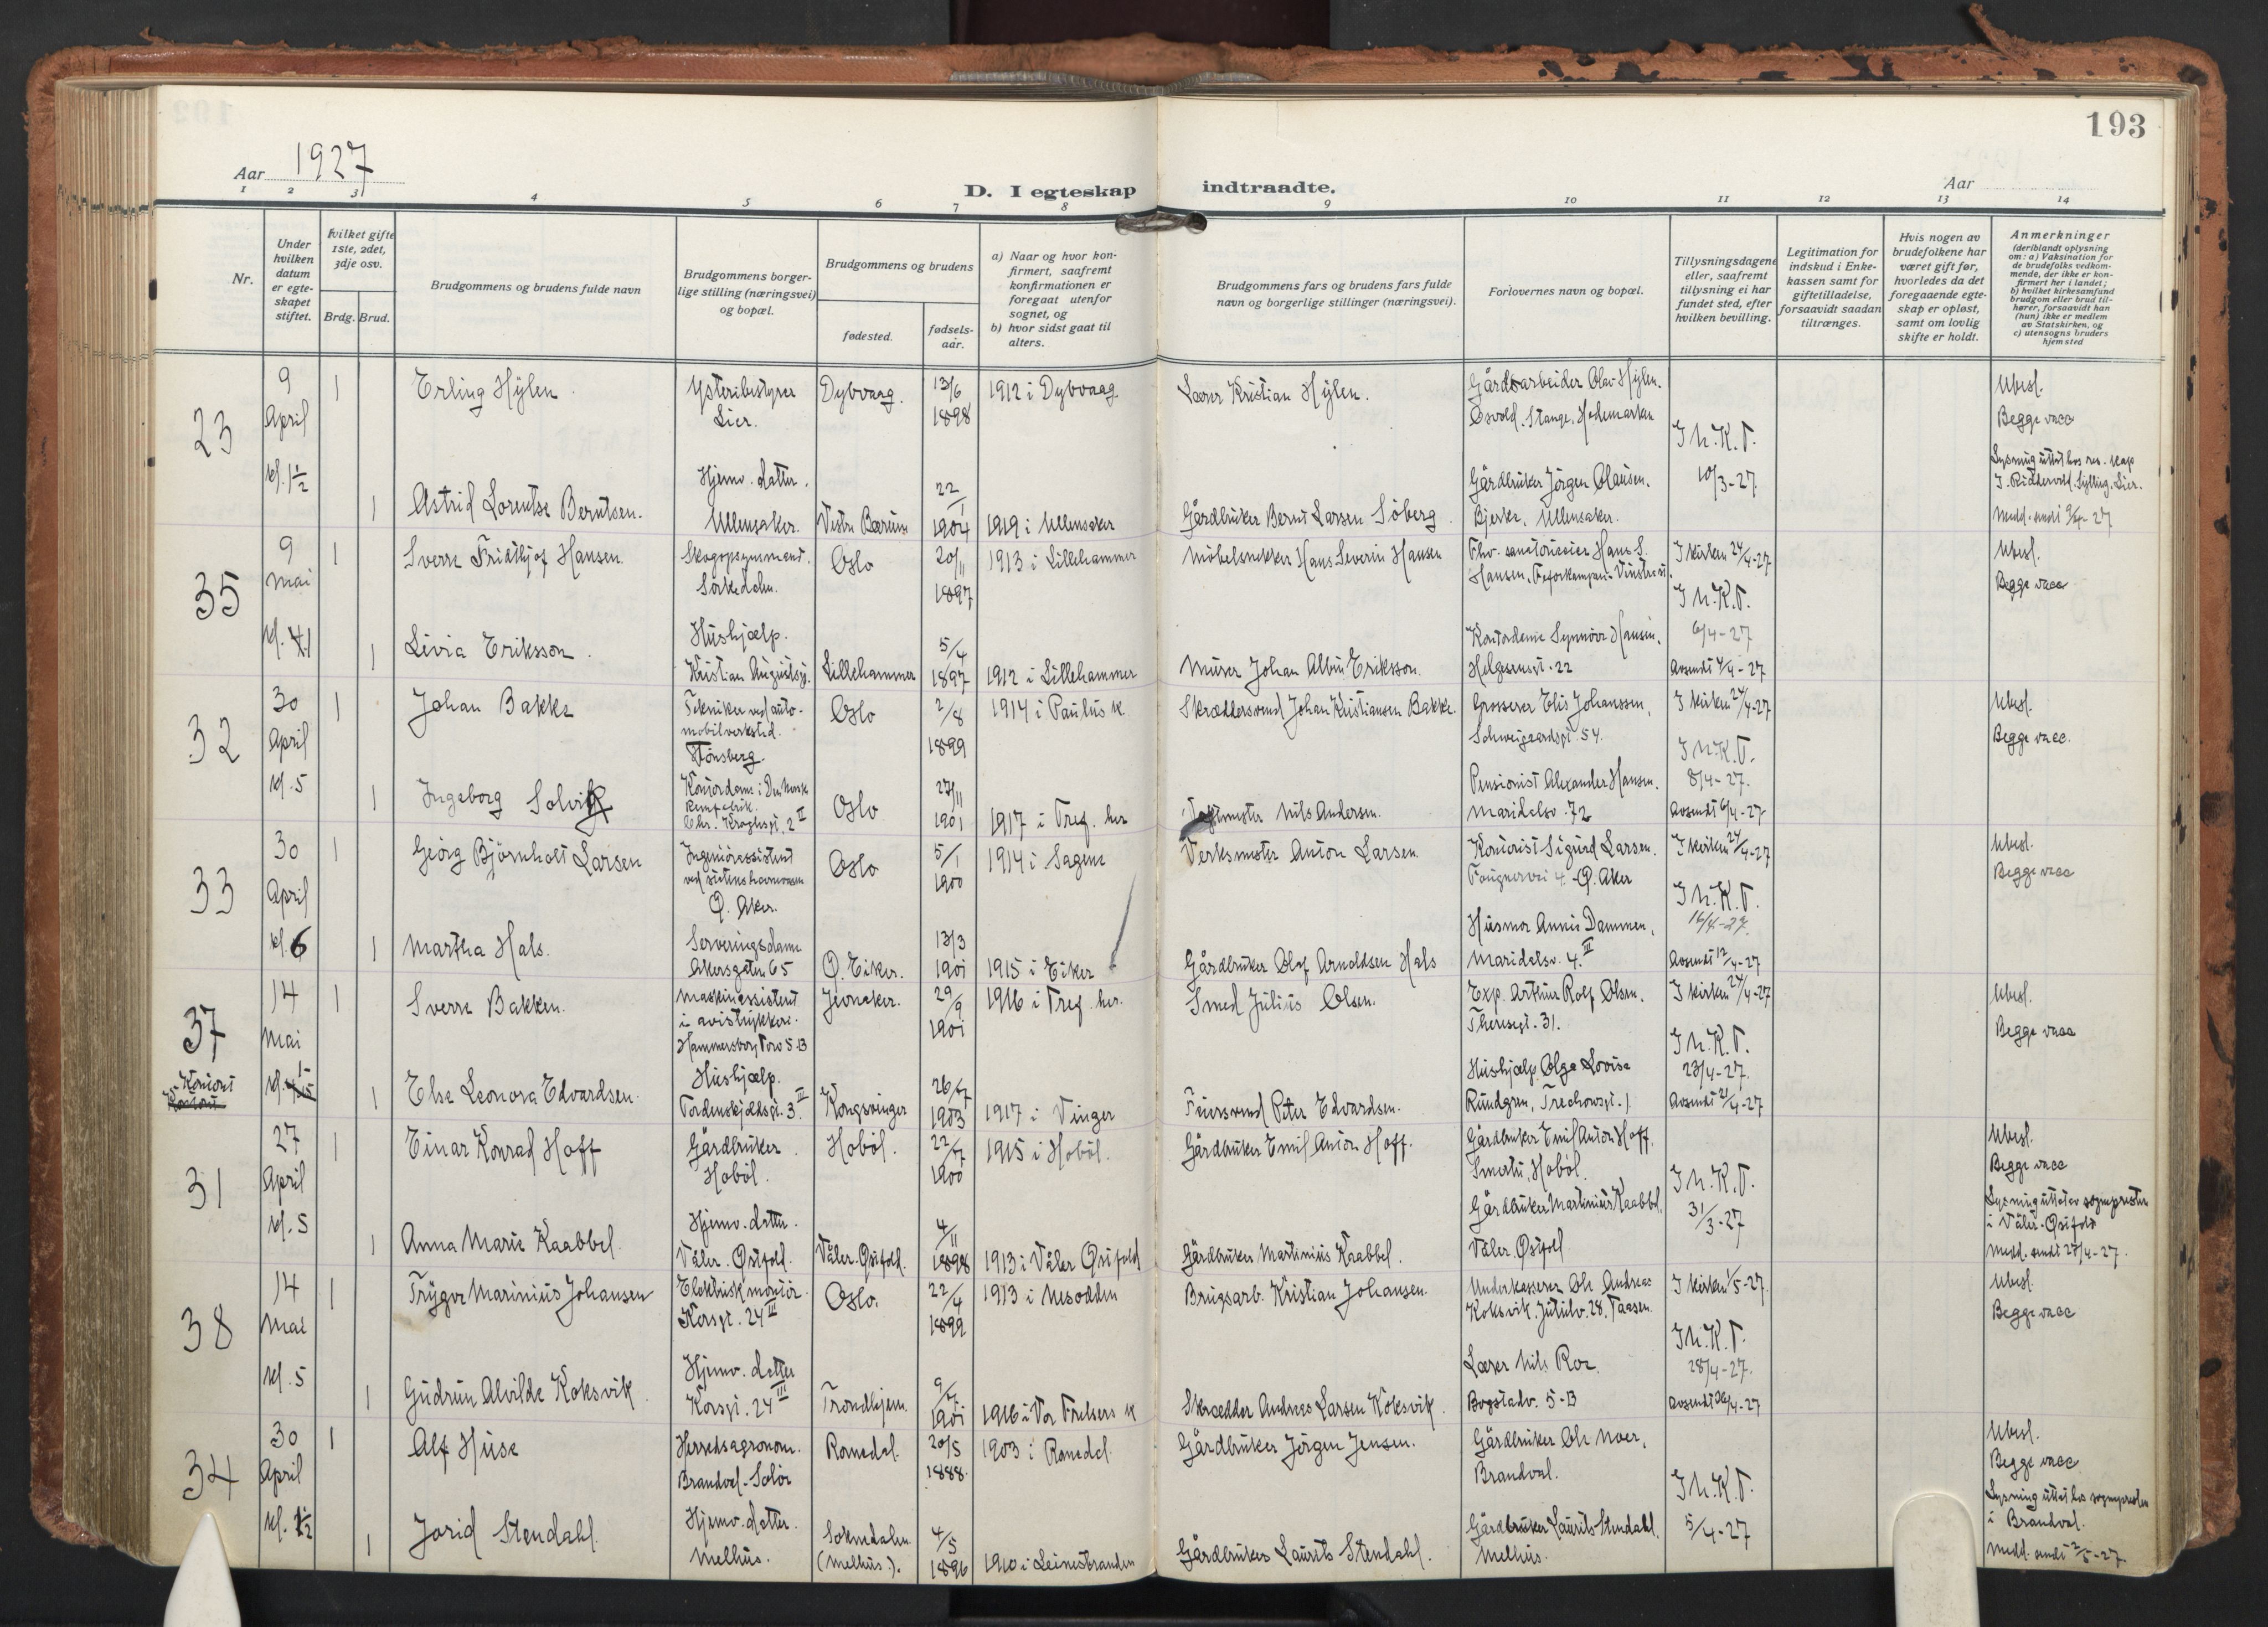 193
Aar 1927
D. I egteskap indtraadte.
Aar
1 2 3 4 5 6 7 8 9 10 11 12 13 14
Nr.
Under hvilken datum er egte-skapet stiftet.
hvilket gifte 1ste, 2det, 3dje osv.
Brdg. Brud.
Brudgommens og brudens fulde navn
Brudgommens borger-lige stilling (næringsvei) og bopæl.
Brudgommens og brudens
fødested.
fødsels-aar.
a) Naar og hvor kon-firmert, saafremt konfirmationen er foregaat utenfor sognet, og
b) hvor sidst gaat til alters.
Brudgommens fars og brudens fars fulde navn og borgerlige stillinger (næringsvei).
Forlovernes navn og bopæl.
Tillysningsdagene eller, saafremt tillysning ei har fundet sted, efter hvilken bevilling.
Legitimation for indskud i Enke-kassen samt for giftetilladelse, forsaavidt saadan tiltrænges.
Hvis nogen av brudefolkene har været gift før, hvorledes da det foregaaende egte-skap er opløst, samt om lovlig skifte er holdt.
Anmerkninger (deriblandt oplysning om: a) Vaksination for de brudefolks vedkom-mende, der ikke er kon-firmert her i landet; b) hvilket kirkesamfund brudgom eller brud til-hører, forsaavidt han (hun) ikke er medlem av Statskirken, og c) utensogns bruders hjemsted
23
9 April kl. 1 1/2
1 Erling Hylen. Ysteribestyrer Lier. Dybvaag. 13/6 1898 1912 i Dybvaag. Lærer Kristian Hylen. Gårdsarbeider Olav Hylen. Osvold. Stange. Hedemarken
I h.K.T. 10/3-27
Ubesl. Begge vacc
1 Astrid Lorentse Berntsen. Hjemv. datter. Ullensaker. Vestre Bærum 22/1 1904 1919 i Ullensaker Gårdbruker Bernt Larsen Söberg. Gårdbruker Jörgen Olausen. Bjerke. Ullensaker.
Lysning uttat hos res. kap J. Ridderold. Sylling. Lier. Medd. sendt 9/4-27
35
9 Mai
1 Sverre Fridthjof Hansen. Sörkedalen. Oslo 20/11 1897 1913 i Lillehammer Möbelsnekker Hans Severin Hansen Hans S. Hansen.
I kirken 24/4-27 I h.K.T. 6/4-27
Ubesl. Begge vacc
1 Livia Eriksson. Hushjælp. Kristian Augustsg. Lillehammer 5/4 1897 1912 i Lillehammer Murer Johan Albin Eriksson. Kontordame Synnöve Hansen. Helgesensgt. 22
Avsendt 4/4-27
32
30 April kl. 5
1 Johan Bakke Tekniker ved auto-mobilverksted. Tönsberg. Oslo 2/8 1899 1914 i Paulus k. Skræddersvend Johan Kristiansen Bakke. Grosserer Elis Johanssen, Schweigaardsgt. 54.
I kirken 24/4-27 I h.K.T. 8/4-27.
Ubesl. Begge vacc.
1 Ingeborg Solvik Kontordame i Den Norsk Chr. Kroghsgt. 2 II Oslo 27/11 1901 1917 i Tref. her Nils Andersen. Pensionist Alexander Hansen. Maridalsv. 72
Avsendt 6/4-27
33
30 April kl. 6
1 Georg Björnholt Larsen Ingeniörassistent ved statens havnevæsen Ö. Aker. Oslo 5/1 1900 1914 i Sagene Verksmester Anton Larsen. Kontorist Sigurd Larsen. Fougnervei 4. Ö. Aker
I kirken 24/4-27 I h.K.T. 16/4-27.
Ubesl. Begge vacc
1 Martha Hals. Serveringsdame Akersgaten 65 Ö. Eiker. 13/3 1901 1915 i Eiker Gårdbruker Olof Arnoldsen Hals Husmor Annie Dammen, Maridalsv. 4. III
Avsendt 12/4-27
37
Kontoret
14 Mai
1 Sverre Bakken. Maskinassistent i avistrykkeri. Hammersborg Torv 5-B Jevnaker. 29/9 1901 1916 i Tref. her. Smed Julius Olsen. Exp. Arthur Rolf Olsen. Theresegt. 31.
I kirken 24/4-27 I h.K.T. 23/4-27.
Ubesl. Begge vacc
1 Else Leonora Edvardsen. Hushjælp. Tordenskjoldsgt. 3. III Kongsvinger 26/7 1903 1917 i Vinger Peter Edvardsen. Hushjælp Olga Lovise Rundgren, Trechowsgt. 1
Avsendt 21/4-27
31
27 April kl. 5
1 Einar Konrad Hoff Gårdbruker Hoböl. Hoböl. 22/7 1900 1915 i Hoböl. Gårdbruker Emil Anton Hoff. Gårdbruker Emil Anton Hoff. Hoböl.
I h.K.T. 31/3-27
Ubesl. Begge vacc
1 Anna Marie Kaabbel. Hjemv. datter. Våler. Østfold. Våler. Østfold. 4/11 1898 1913 i Våler Østfold Gårdbruker Martinius Kaabbel. Gårdbruker Martinius Kaabbel. Våler. Østfold
Lysning uttat av sogneprester i Våler. Østfold Medd. sendt 27/4-27.
38
14 Mai kl. 5
1 Trygve Marinius Johansen Elektrisk montör. Korsgt. 24 III Oslo. 22/4 1899 1913 i Nesodden Brugsarb. Kristian Johansen. Underkasserer Ole Andreas Koksvik. Jutulv. 28. Taasen.
I kirken 1/5-27. I h.K.T. 28/4-27.
Ubesl. Begge vacc
1 Gudrun Alvilde Koksvik. Hjemv. datter Korsgt. 24 III Trondhjem. 9/7 1901 1916 i Vor Frelsers k Skrædder Andreas Larsen Koksvik. Lærer Nils Roe. Bogstadv. 5-B
Avsendt 26/4-27
34
30 April kl. 1 1/2
1 Alf Huse Herredsagronom. Brandval-Solör Romedal. 20/5 1888. 1903 i Romedal. Gårdbruker Jörgen Jensen. Gårdbruker Ole Noer, Brandval.
I h.K.T. 5/4-27
Ubesl. Begge vacc
1 Jorid Stendahl. Hjemv. datter. Melhus. Soknedalen (Melhus). 4/5 1896 1910 i Leinestranden Gårdbruker Laurits Stendahl. Gårdbruker Laurits Stendahl. Melhus.
Lysning uttat hos sogneprestem i Brandval. Medd. sendt 2/5-27.